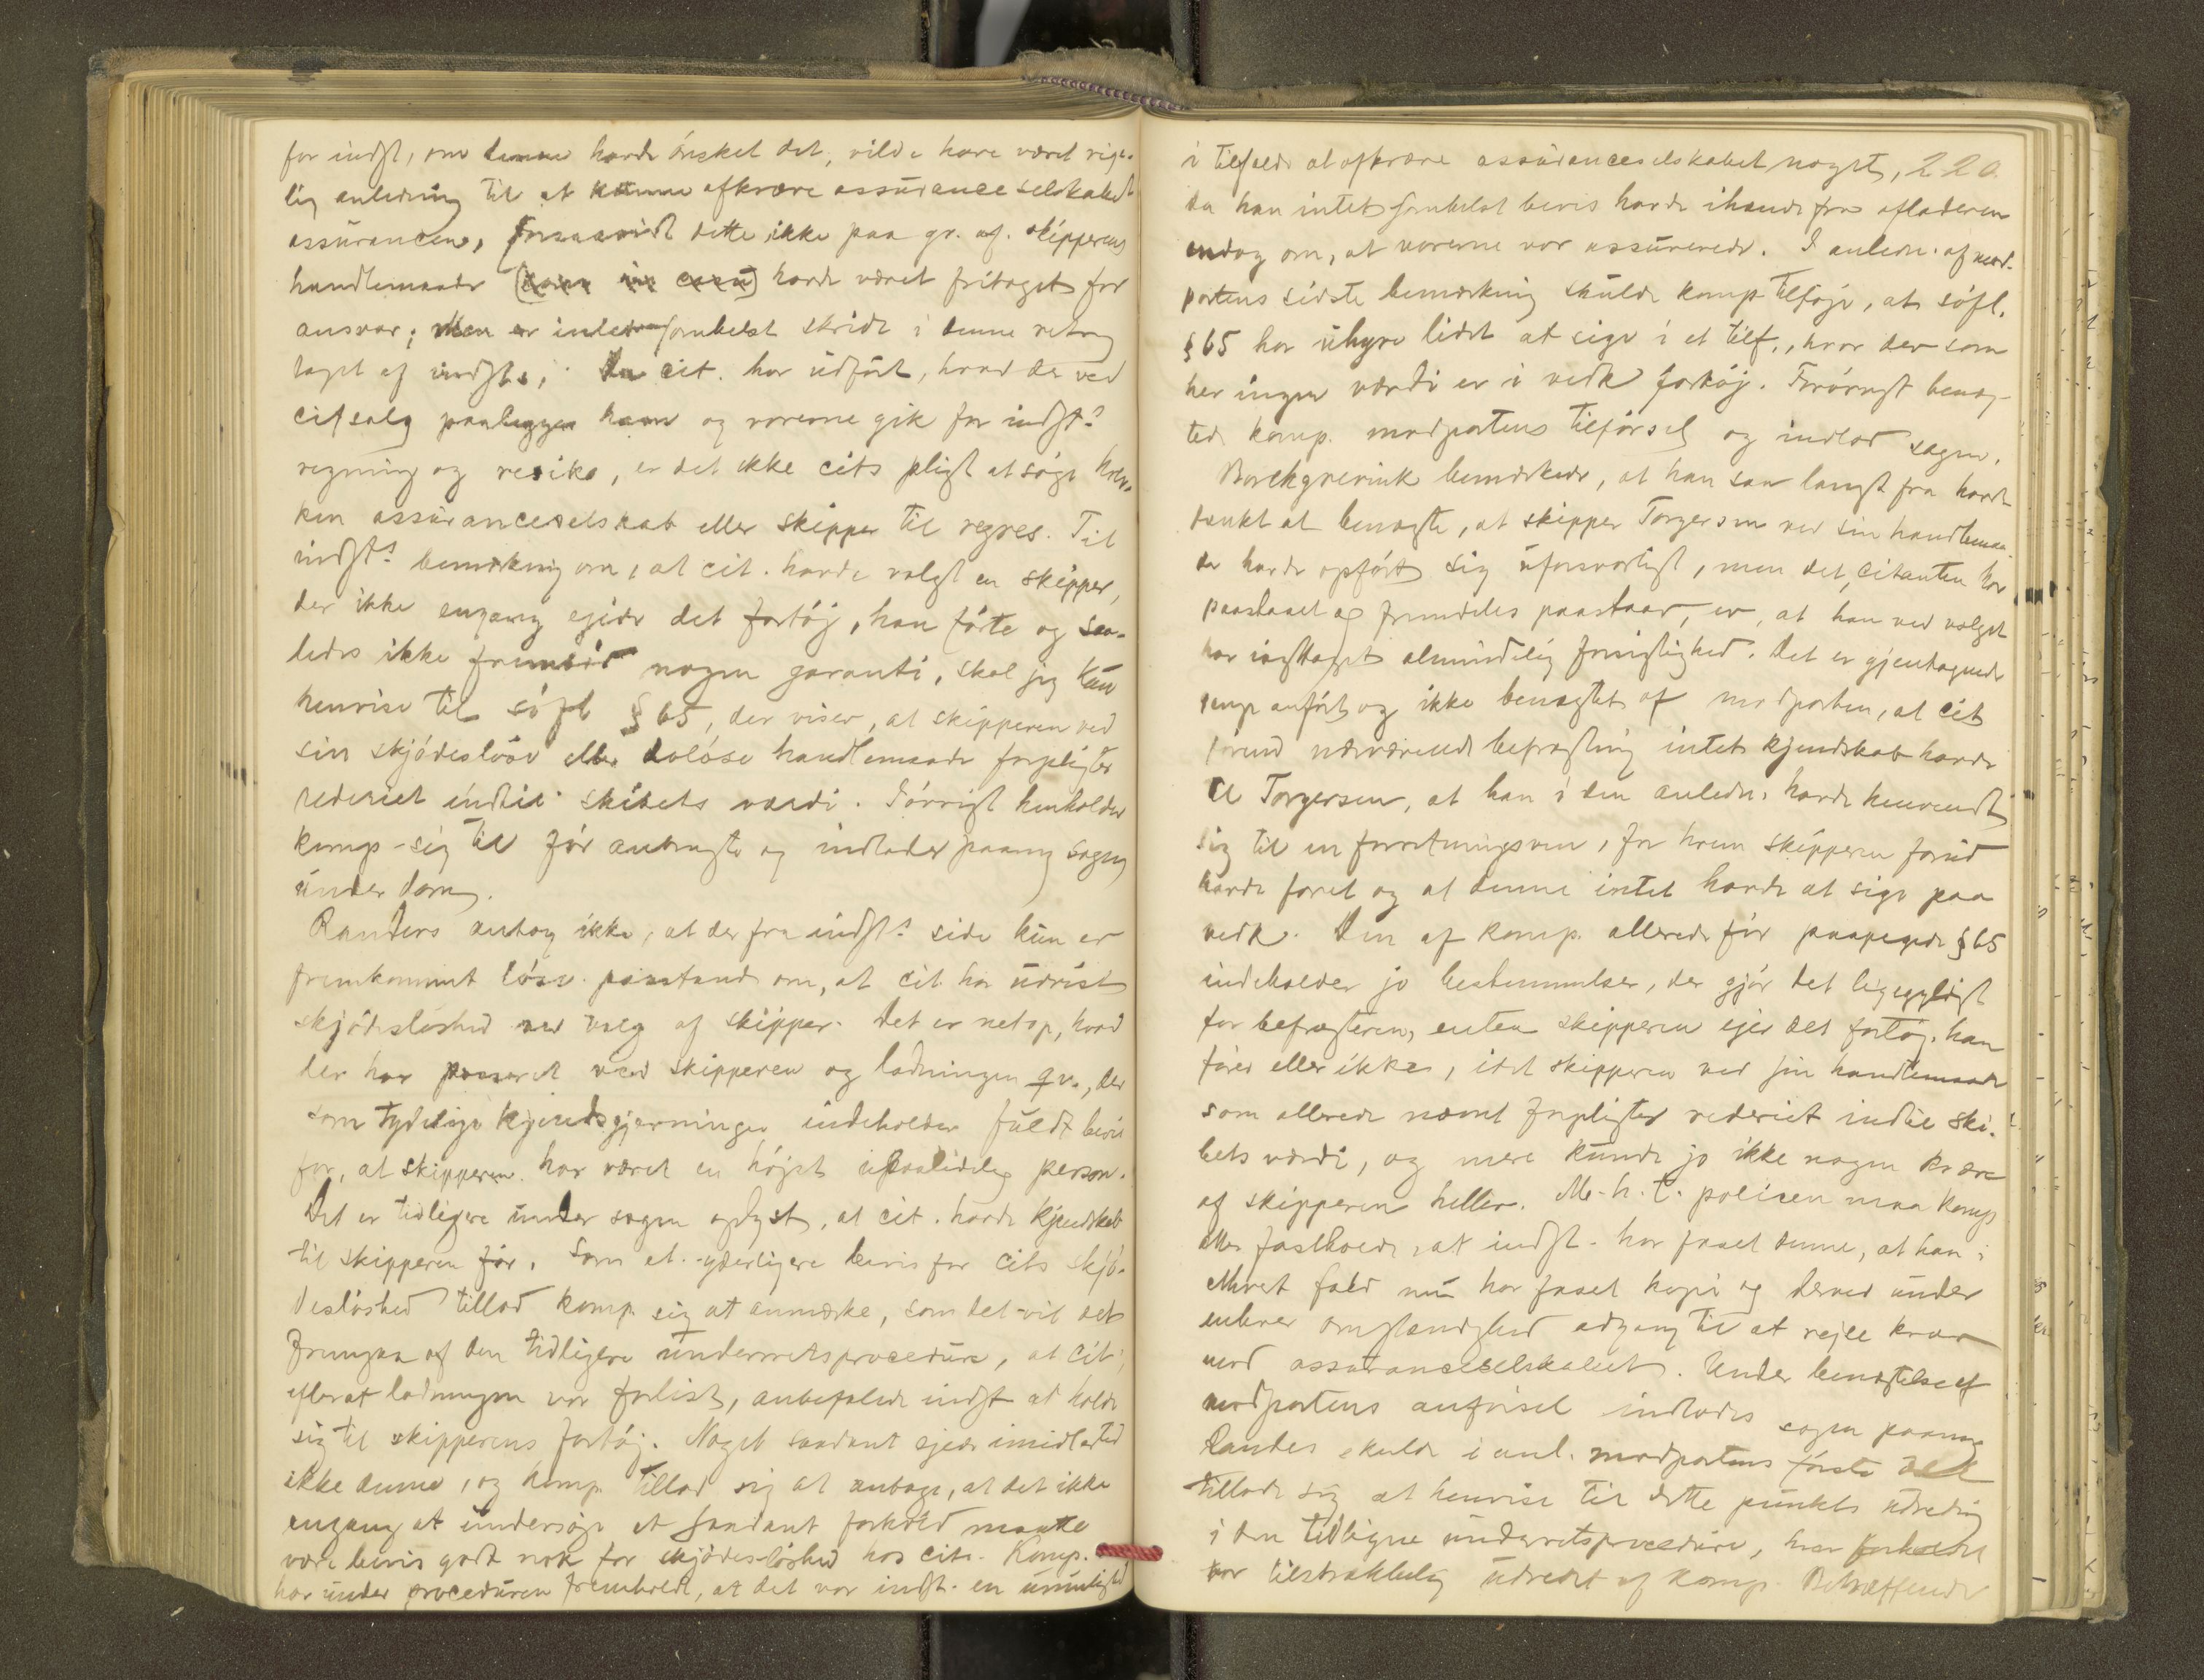 for indst, om denne havde ønsket det, vilde have været rige-
lig anledning til at kunne afkræve assuranceselskabet
assurancen, forsaavidt dette ikke paa gr. af. skipperens
handlemaade (som in casu) havde været fritaget for
ansvar; Men er intetsomhelst skridt i denne retning
taget af indst., Da cit. har udført, hvad der ved
cifsalg paalegger ham og varerne gik for indst.s
regning og resiko, er det ikke cits pligt at søge hver-
ken assuranceselskab eller skipper til regres. Til
indst.s bemærkning om, at cit. havde valgt en skipper,
der ikke engang ejede det fartøj, han førte og saa-
ledes ikke frembød nogen garanti, skal jeg kun
henvise til søfl § 65, der viser, at skipperen ved
sin skjødesløse eller doløse handlemaade forpligter
rederiet indtil skibets værdi. Iøvrigt henholder
komp. sig til før anbragte og indlader paany sagen
under dom.
Randers antog ikke, at der fra indst.s side kun er
fremkommet løse paastand om, at cit har udvist
skjødesløshed ved valg af skipper. Det er netop, hvad
der har passeret med skipperen og ladningen qv., der
som tydelige kjendsgjerninger indeholder fuldt bevis
for, at skipperen har været en højst upaalidelig person.
Det er tidligere under sagen oplyst, at cit. havde kjendskab
til skipperen før. Som et yderligere bevis for cits skjø-
desløshed tillod komp. sig at anmærke, som det vil sees
fremgaa af den tidligere underretsprocedure, at cit,
efterat ladningen var forlist, anbefalede indst at holde
sig til skipperens fartøj. Noget saadant ejede imidlertid
ikke denne, og komp. tillod sig at antage, at det ikke
engang at undersøge et saadant forhold maatte
være bevis godt nok for skjødesløshed hos cit. Komp.
har under proceduren fremholdt, at det var indst. en umulighed
i tilfælde at afkræve assuranceselskabet noget, 220.
da han intetsomhelst bevis havde ihænde fra afladeren
endog om, at varerne var assurerede. I anledn. af mod-
partens sidste bemærkning skulde komp tilføje, at søfl.
§ 65 har uhyre lidet at sige i et tilf., hvor der som
her ingen værdi er i vedk fartøj. Forøvrigt benæg-
tede komp. modpartens tilførsel og indlod sagen.
Borchgrevink bemærkede, at han saa langt fra havde
tænkt at benægte, at skipper Torgersen ved sin handlemaa-
de havde opført sig uforsvarligt, men det, citanten har
paastaaet og fremdeles paastaar, er, at han ved valget
har iagttaget almindelig forsigtighed. Det er gjentagende
gange anført og ikke benægtet af modparten, at cit
forud nærværende befragtning intet kjendskab havde
til Torgersen, at han i den anledn. havde henvendt
sig til en forretningsven, for hvem skipperen forud
havde faret og at denne intet havde at sige paa
vedk. Den af komp. allerede før paapegede § 65
indeholder jo bestemmelser, der gjør det ligegyldigt
for befragteren, enten skipperen ejer det fartøj, han
fører eller ikke, idet skipperen ved sin handlemaade
som allerede nævnt forpligter rederiet indtil ski-
bets værdi, og mere kunde jo ikke nogen kræve
af skipperen heller. M. h. t. policen maa komp
atter fastholde, at indst. har faaet denne, at han i
ethvert fald nu har faaet kopi og derved under
enhver omstændighed adgang til at rejse krav
mod assuranceselskabet. Under benægtelse af
modpartens anførsel indlodes sagen paany
Randers skulde i anl. modpartens første del
tillade sig at henvise til dette punkts udredning
i den tidligere underretsprocedure, hvor forholdet
var tilstrækkelig udredet af komp. Betræffende